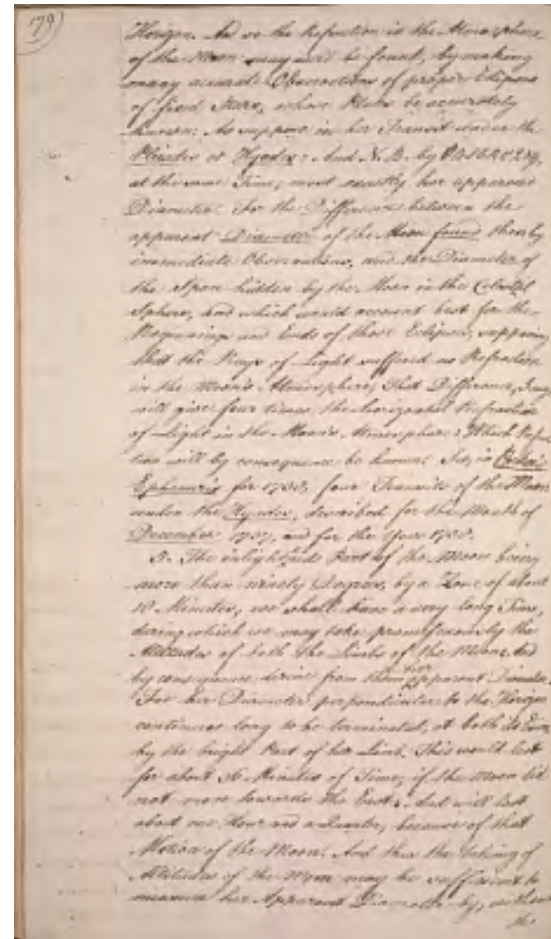 179)
Horizon. And so the Refraction in the Atmosphere
of the Moon may well be found, by making
many accurate Observations of proper Eclipses
of fixed Stars, whose Places be accurately
known: As suppose in her Transit under the
Pleiades or Hyades: And N.B. by
at the same Time, most exactly her apparent
Diameter. For the Difference between the
apparent Diameter of the Moon found thereby
immediate Observations, and the Diameter of
the Space hidden by the Moon in the Celestial
Sphere, and which would account best for the
Beginnings and Ends of those Eclipses, supposing
that the Rays of Light suffered no Refraction
in the Moon's Atmosphere; That Difference, I say
will give four times the horizontal Refraction
of Light in the Moon's Atmosphere: Which Refrac-
tion will by consequence be known. See, in
Ephemeris for 1738, four Transits of the Moon
under the Hyades, described for the Month of
December 1737, and for the Year 1738.
The inlightened Part of the Moon being
more than ninety Degrees, by a Zone of about
10 Minutes, we shall have a very long Time,
during which we may take promiscuously the
Altitudes of both the Limbs of the Moon: And
by consequence derive from them her apparent Diameter.
For her Diameter perpendicular to the Horizon
continues long to be terminated, at both its Ends,
by the bright Part of her Limb. This would last
for about 36 Minutes of Time, if the Moon did
not move towards the East: but will last
about one Hour and a Quarter, because of that
Motion of the Moon. And thus the taking of
Altitudes of the Moon may be sufficient to
measure her Apparent Diameter by, without
the